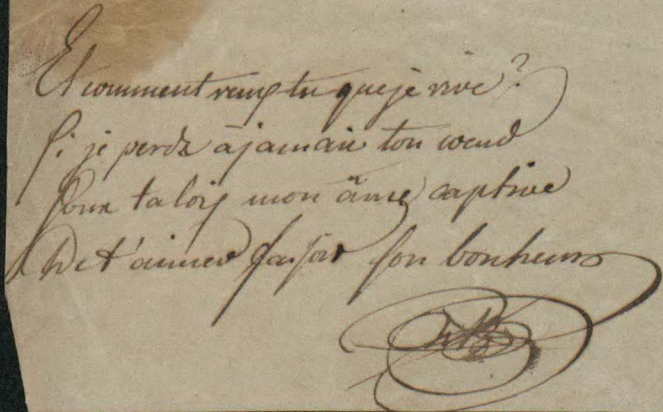 Et comment veux tu que je vive ?
Si je perds à jamais ton cœur
Sous ta loix mon âme captive
De t'aimer faisait son bonheur